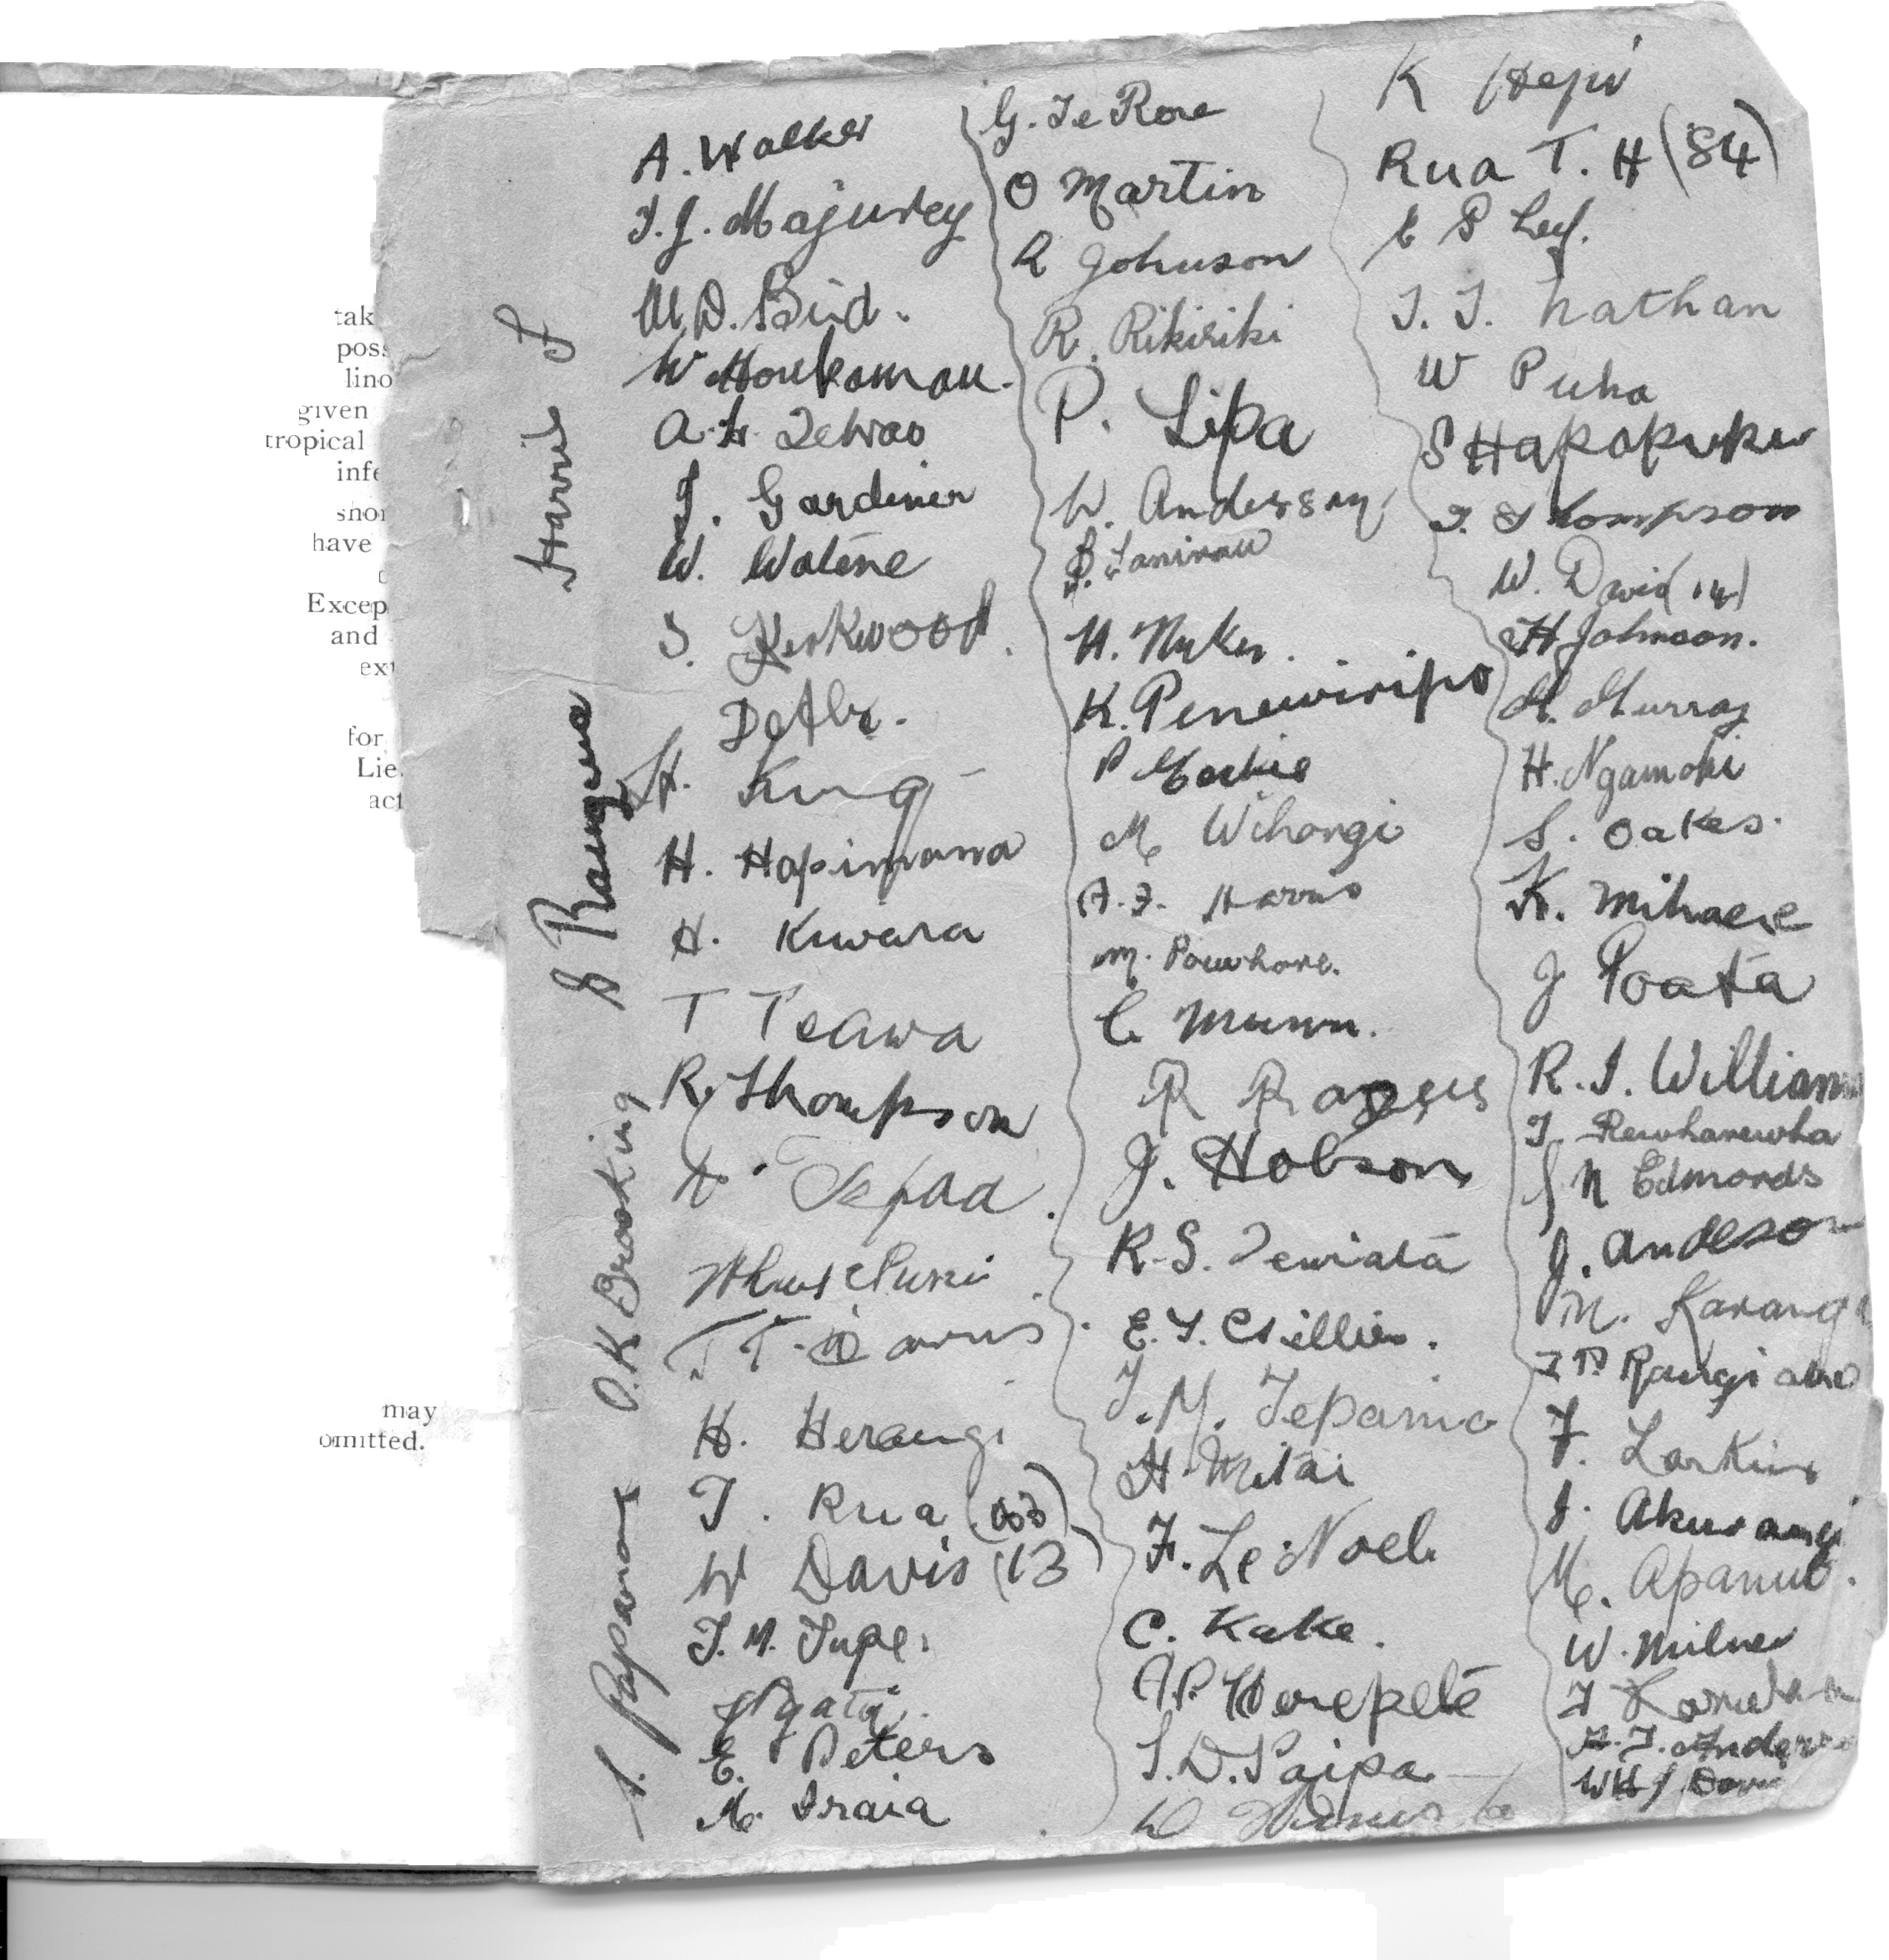 tak
poss
lino
given
tropical
infe
shor
have
Excep
and
ext
for
Lie
act
may
omitted.
Harris J
S Rangiuia
O.K Brooking
J. Papanoa
A. Walker
T.J. Majurey
M.D. Bird.
W Houkamau.
A.H.
J. Gardiner
W. Watene
J. Kirkwood.
H. King
H. Hapimana
H. Kiwara
T Teawa
R. Thompson
Tepaa.
H. Herangi
T. Rua (83)
W Davis (13)
T.M. Tupe.
Ngata.
E. Peters
M. Iraia
G. Te Rore
O Martin
R Johnson
R. Rikiriki
P. Lipa
W. Anderson
H. Nuku.
K. Penewiripo
P
M Wihongi
A.F. Harris
M. Pouwhare.
C. Munn.
R Rogers
J. Hobson
R.S. Tewiata
E.T.
T.M. Tepania
H. Mitai
F. Le Noel.
C. Kaka.
A.P. Herepete
T.D. Paipa
W
K Hepi
Rua T. H (84)
T. T. Nathan
W Puha
S Hapakuku
T. Thompson
W. David (14)
H Johnson.
M. Murray
H. Ngamoki
S. Oakes.
K. Mihaere
J Poata
R.I. Williams
T. Rewharewha
N Edmonds
J. Anderson
M. Karanga
T P. Rangiaho
F. Larkins
J. Akurangi
M. Apanui.
W. Milner